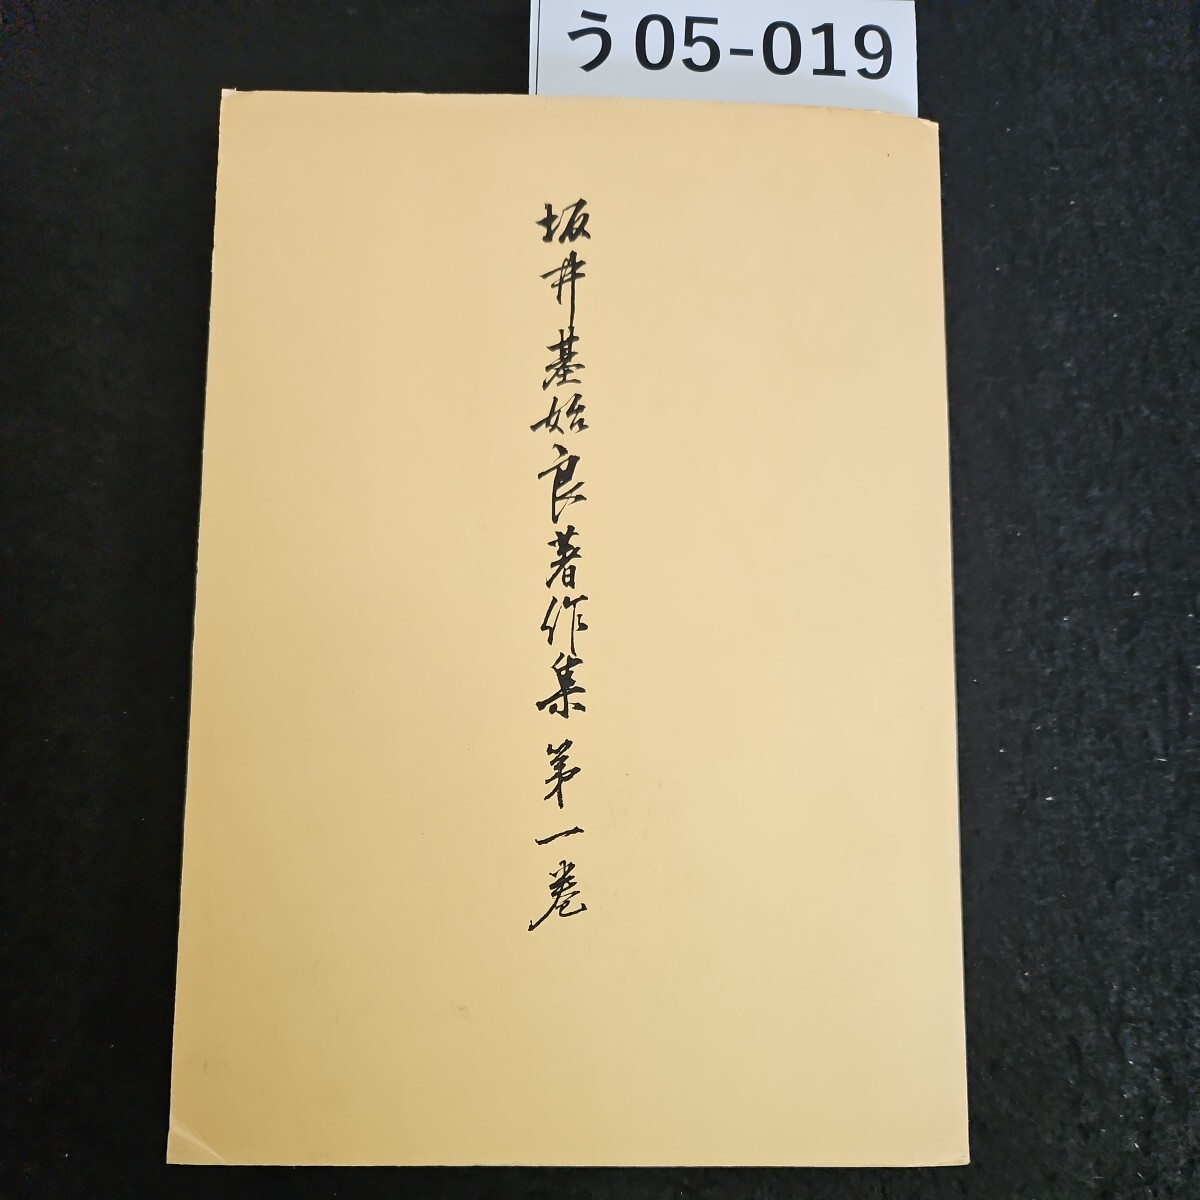 う05-019
坂井基始良著作集 第一巻